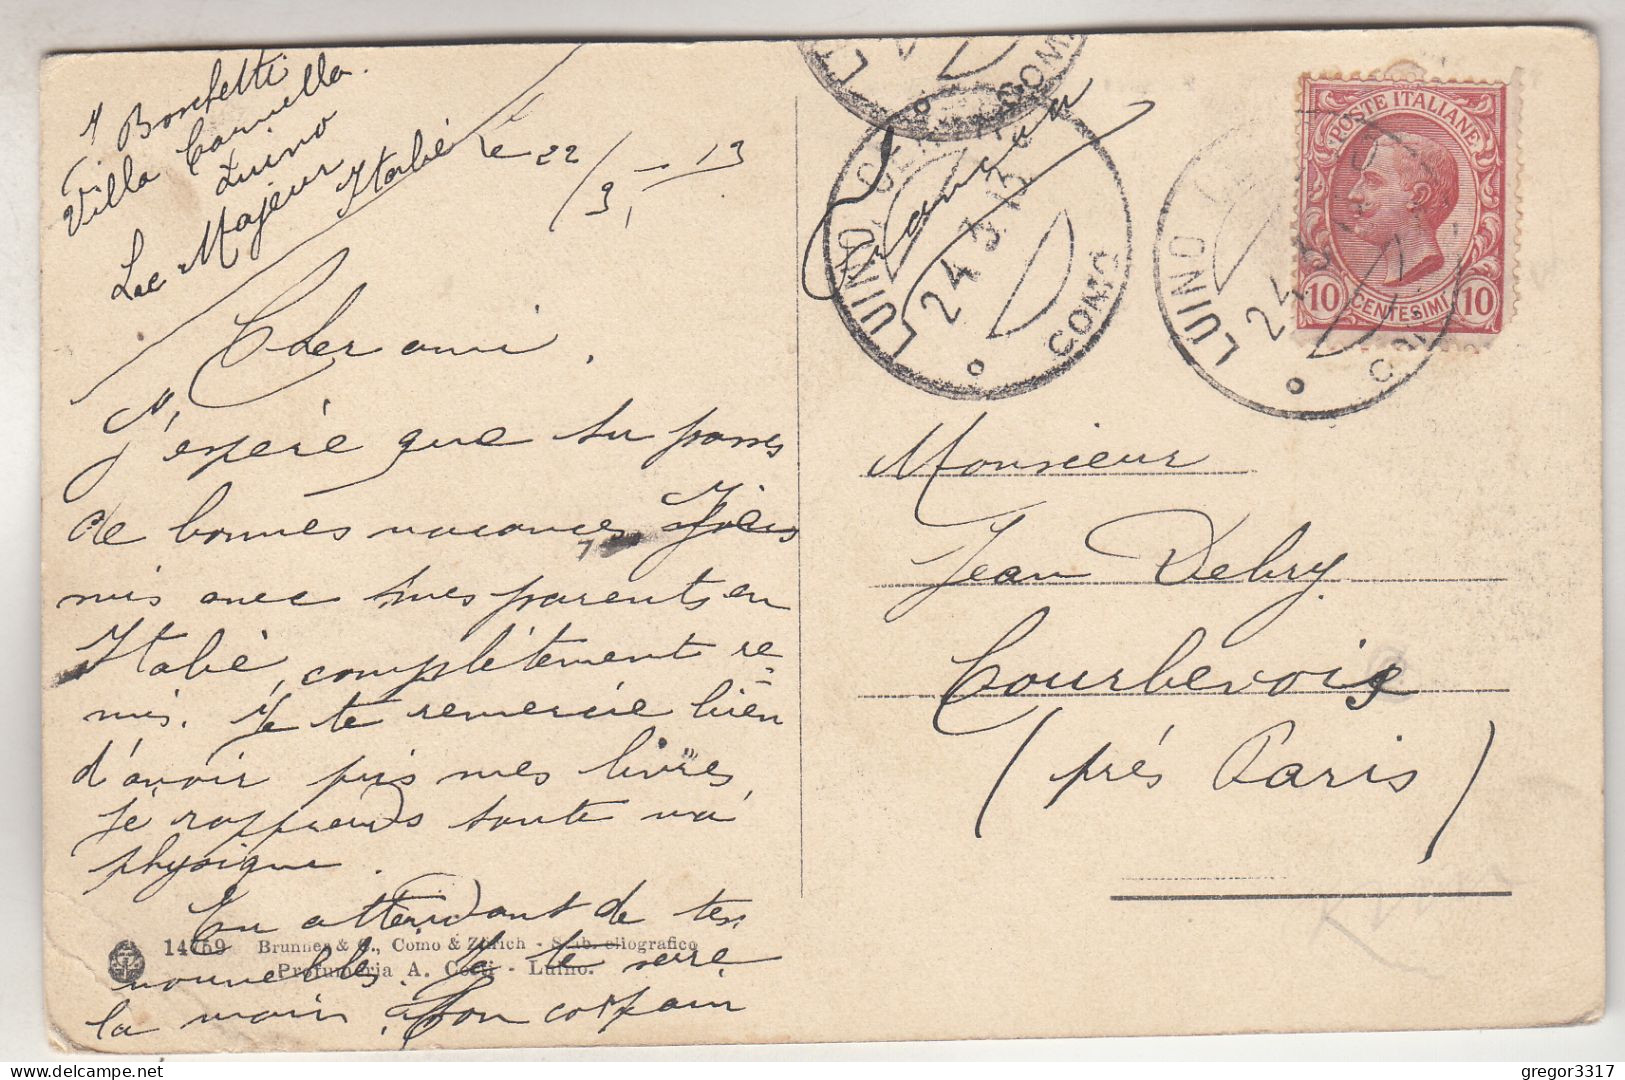 Boschetti
Villa Camilla.
Luino
Lac Majeur
Italie
le 22/3-13
Cher ami.
J'espère que tu passes
de bonnes vacances, Je suis
mis avec mes parents en
Italie, complètement re=
mis. Je te remercie bien
d'avoir pris mes livres,
je rapprends toute ma
physique.
En attendant de tes
nouvelles. Je te serre
la main. Ton copain
14769 Brunner & C., Como & Zürich - Stab. eliografico
Profumeria A. Conti - Luino.
LUINO COMO
24.3.13
LUINO COMO
24.3
POSTE ITALIANE
10 CENTESIMI 10
Monsieur
Jean Debry
Courbevoie
(près Paris)
gregor3317